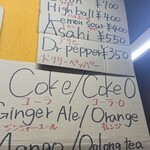 High ball ¥400
Lemon sour ¥400
Asahi ¥550
Dr pepper ¥350
ドクターペッパー
Coke/Coke 0
コーラ コーラ 0
Ginger Ale/Orange
ジンジャーエール オレンジ
Mango/Oolong tea